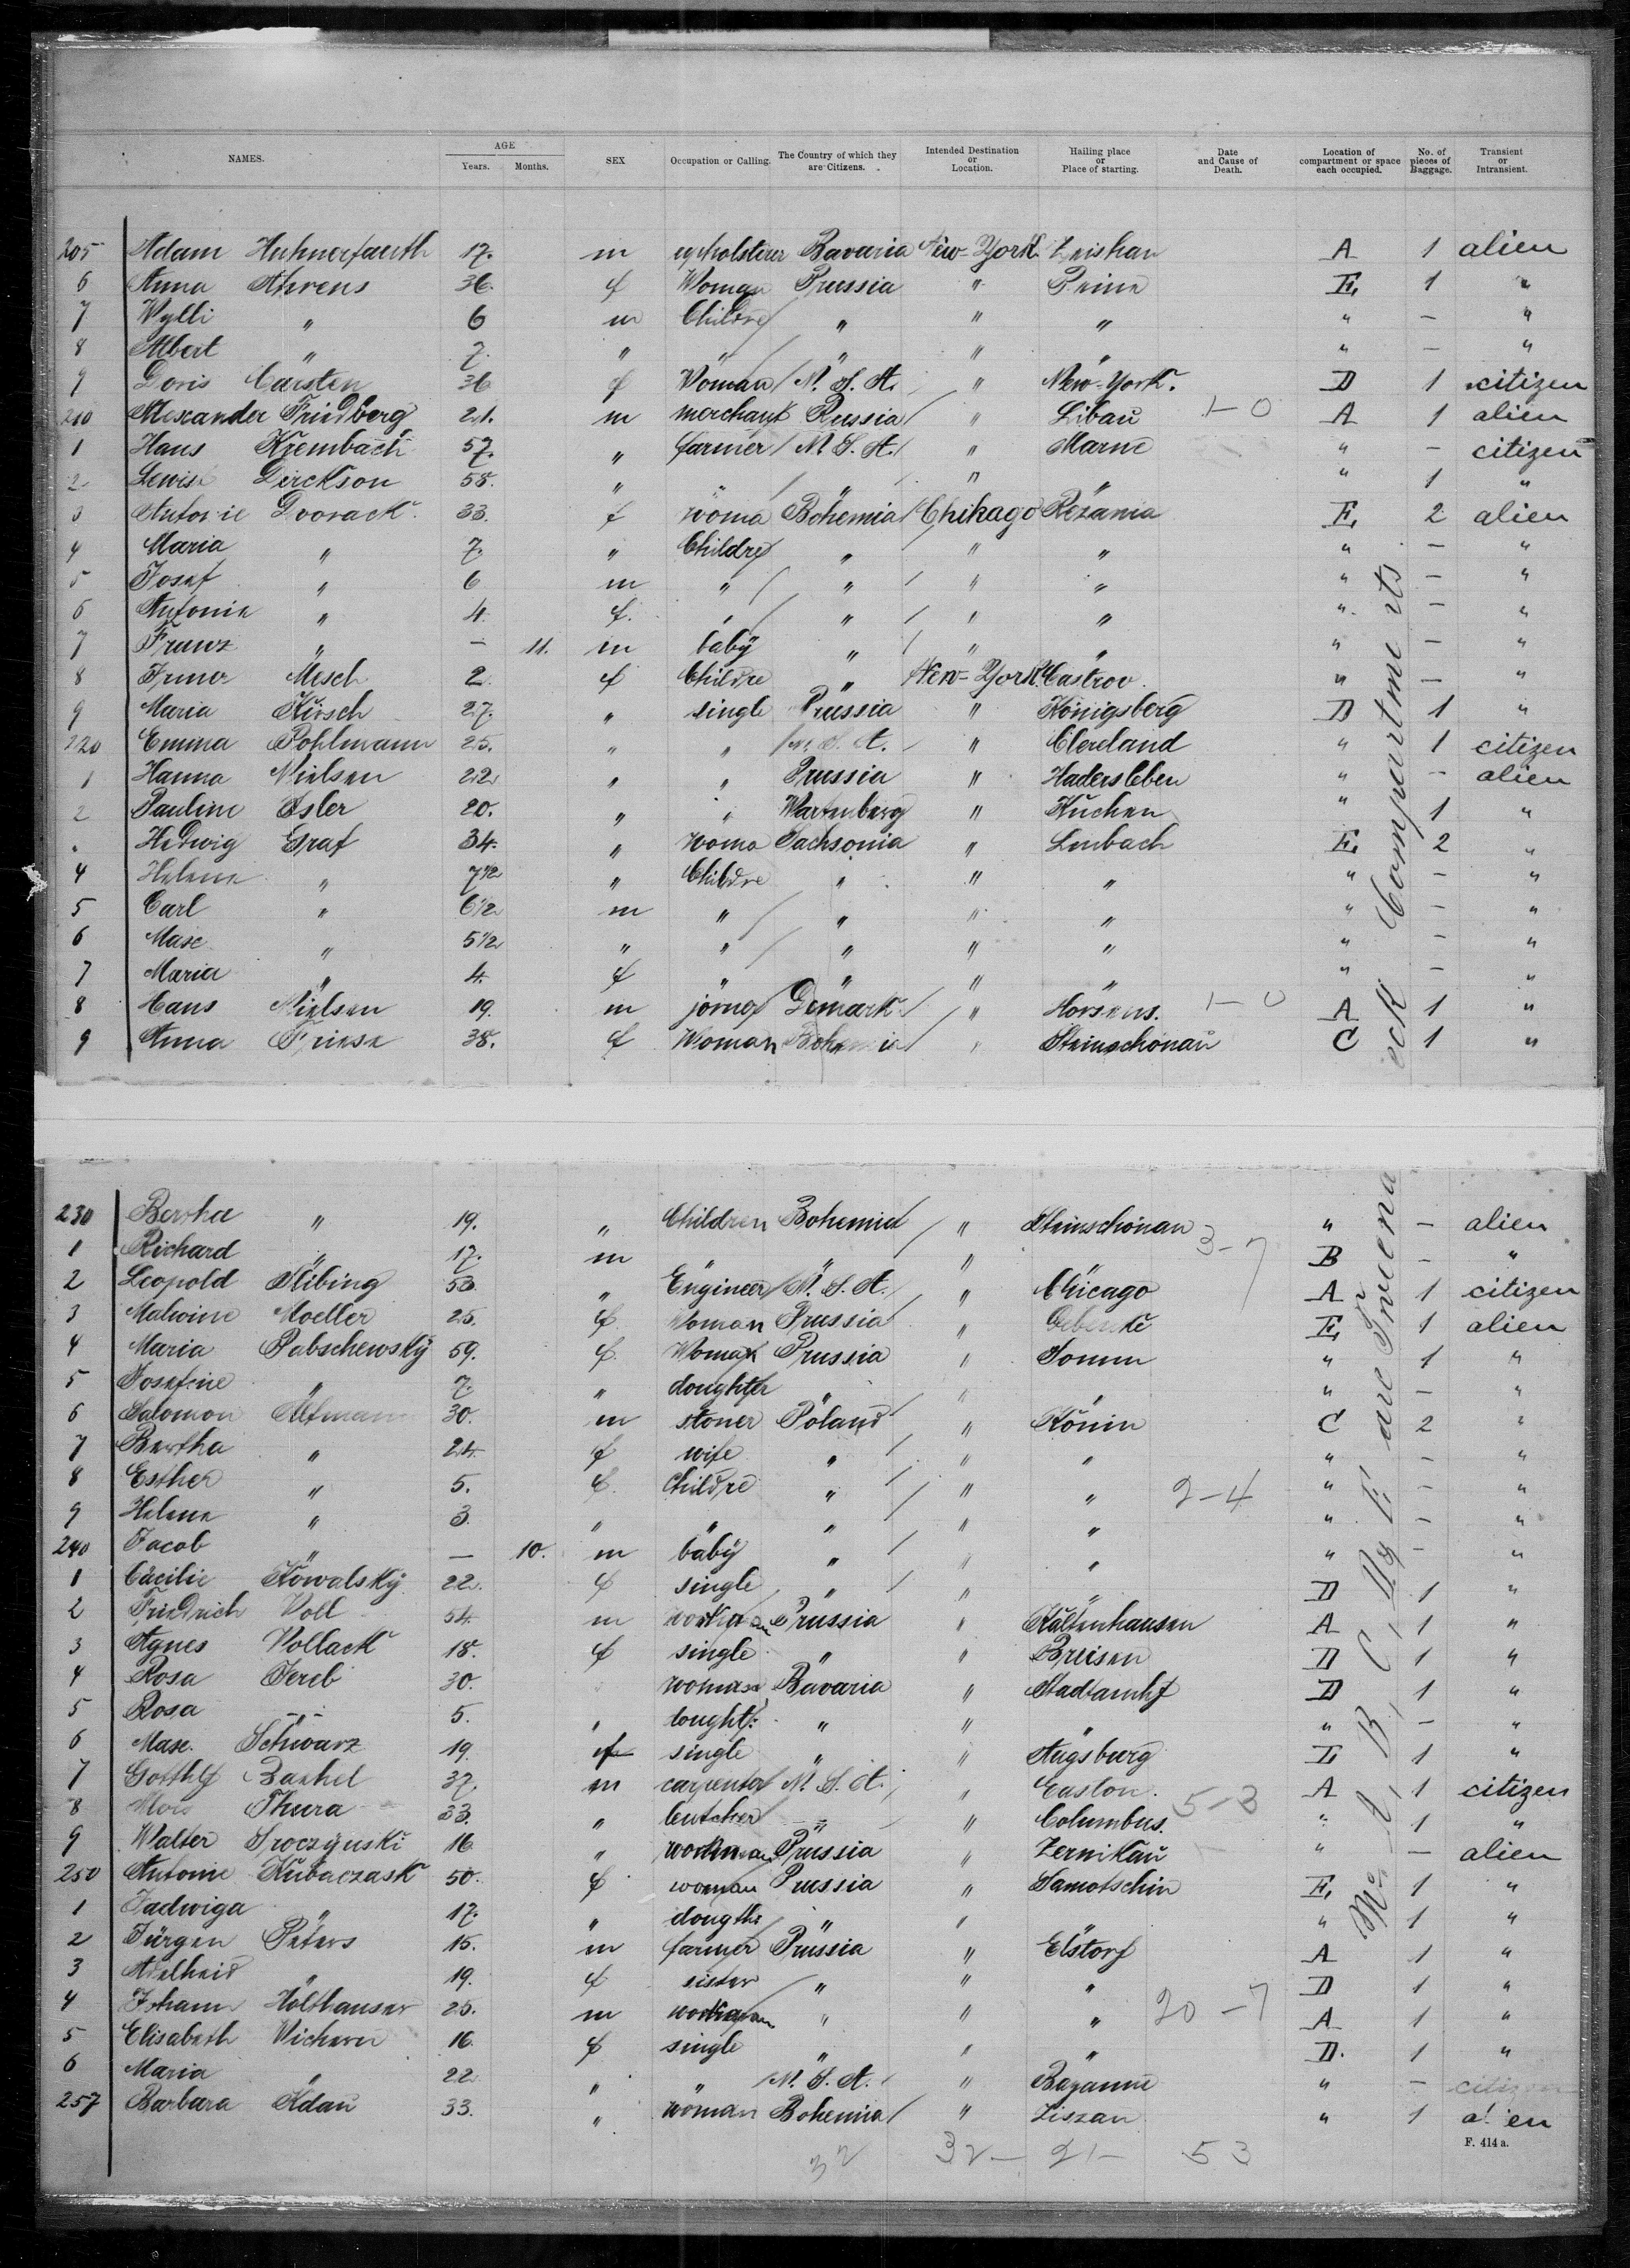 NAMES. AGE Years. Months. SEX Occupation or Calling. The Country of which they are Citizens. Intended Destination or Location. Hailing place or Place of starting. Date and Cause of Death. Location of compartment or space each occupied. No. of pieces of Baggage. Transient or Intransient.
205 Adam 17. m upholsterer Bavaria New-York A 1 alien
6 Anna Ahrens 36. f Woman Prussia " E, 1 "
7 Wylli " 6 m Childre " " " " — "
8 Albert " 7. " " " " " " — "
9 Doris Carsten 36 f Woman N. S. A. " New-York. D 1 citizen
210 Alexander Friedberg 21. m merchant Russia " Libau 1-0 A 1 alien
1 Hans Krembach 57. " farmer N. S. A. " Marne " — citizen
2 Lewis Dirckson 58. " " " " " 1 "
3 Antonie Dvorack 33. f woma Bohemia Chikago E, 2 alien
4 Maria " 7. " Childre " " " " — "
5 Josef " 6 m " " " " " — "
6 Antonia " 4. f. " " " " " — "
7 Franz " — 11. m baby " " " " — "
8 Mesch 2. f Childre " New-York. Castrov. " — "
9 Maria Kirsch 27. " single Prussia " Königsberg D 1 "
220 Emma Pohlmann 25. " " N. S. A. " Cleveland " 1 citizen
1 Hanna Nielsen 22. " " Prussia " Hadersleben " — alien
2 Pauline Isler 20. " " Wartenberg " Kuchen " 1 "
. Hedwig Graf 34. " woma Sachsonia " Limbach E, 2 "
4 Helene " 7 1/2 " Childre " " " " — "
5 Carl " 6 1/2 m " " " " " — "
6 Max " 5 1/2 " " " " " " — "
7 Maria " 4. f " " " " " — "
8 Hans Nielsen 19. m Demark. " Horsens. 1-0 A 1 "
9 Anna 38. f Woman Bohemia " Steinschönau C 1 "
230 Bertha " 19. " Children Bohemia " Steinschönau 3-7 " — alien
1 Richard " 17. m " " " " B — "
2 Leopold Stibing 53. " Engineer N. S. A. " Chicago A 1 citizen
3 Malwine Moeller 25. f. Woman Prussia " E, 1 alien
4 Maria Pabschewsky 59. f. Woman Prussia " " 1 "
5 Josefine " 7. " doughter " " " " — "
6 Salomon 30. m stoner Poland " Konin C 2 "
7 Bertha " 24. f wife " " " " — "
8 Esther " 5. f. Childre " " " 2-4 " — "
9 Helene " 3. " " " " " " — "
240 Jacob " — 10. m baby " " " " — "
1 Cäcilie Kowalsky 22. f single " " " D 1 "
2 Friedrich Voll 54. m workman Prussia " Kaltenhausen A 1 "
3 Agnes Pollack 18. f single " " Briesen D 1 "
4 Rosa Jereb 30. woman Bavaria " Stadtamhf D 1 "
5 Rosa -"- 5. " dought. " " " " — "
6 Max. Schwarz 19. f single " " Augsburg E 1 "
7 Gotthlf 37. m carpenter N. S. A. " Easton. 5-3 A 1 citizen
8 Thura 33. " butcher " " Columbus. " 1 "
9 Walter Sroczynski 16 " workman Prussia " Zernikau " — alien
250 Antonie Kubaczask 50. f woman Prussia " Samotschin E, 1 "
1 Jadwiga " 17. " dougthr " " " 1 "
2 Jürgen Peters 15. m farmer Prussia " Elstorf A 1 "
3 Adelheid " 19. f sister " " " D 1 "
4 Johann Holthausen 25. m workman " " " 20-7 A 1 "
5 Elisabeth 16. f single " " " D. 1 "
6 Maria " 22. " " N. S. A. " Bayanne " — citizen
257 Barbara Adau 33. " woman Bohemia " Liszan " 1 alien
F. 414 a.
32 32- 21- 53